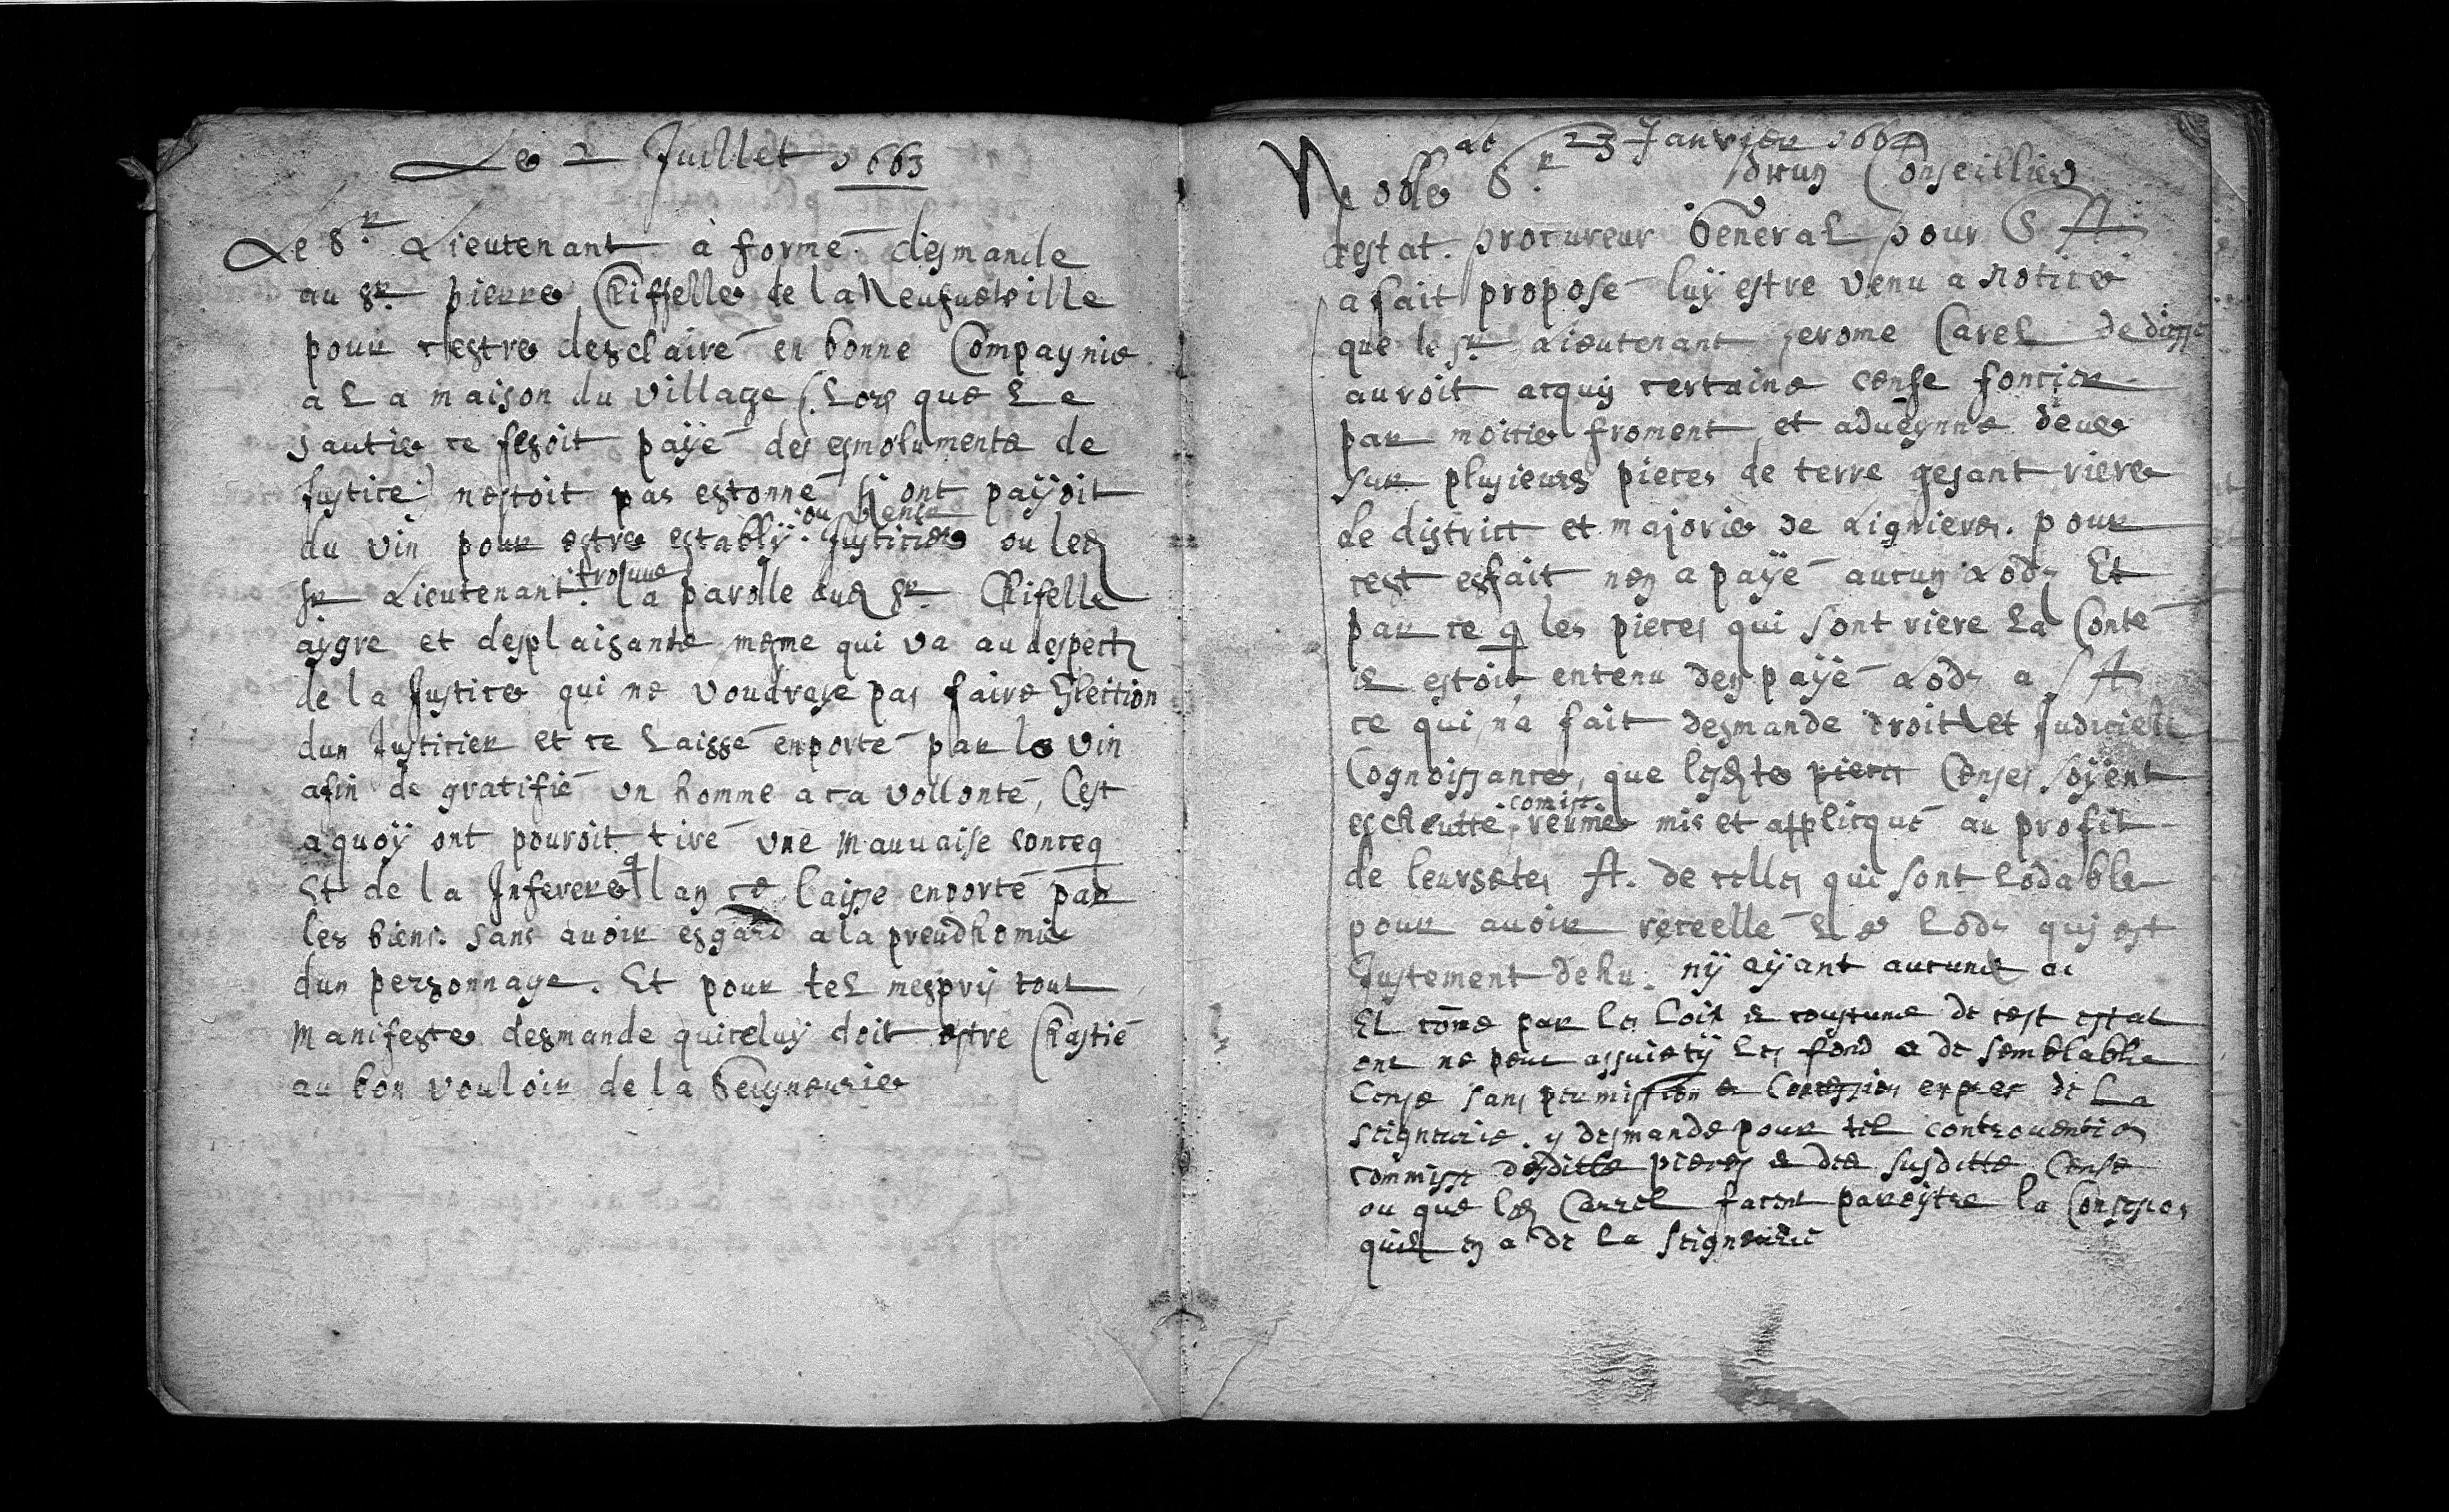 Le 2 Juillet 1663
Le Sr. Lieutenant à formé desmande
au Sr. pierre Chiffelle de la Neufueville
pour cestre desclairé en bonne Compagnie
a La maison du village (Lors que Le
sautie ce fesoit payé des esmolumente de
Justice) nestoit pas estonné si ont payoit
ou dent
du vin pour estre establÿ Justicier ou led
frosuue
Sr Lieutenant. la parolle dud Sr. Chifelle
aygre et desplaisante mesme qui va au despect
de la Justice qui ne voudraye pas faire Election
dun Justicier et ce Laissé enporté par le vin
afin de gratifié vn homme a ca vollonté, Cest
a quoÿ ont pouroit tiré vne mauuaise conceq
Et de la Inferere q lan ce laisse enporté par
les biens. sans auoir esgard a la preudhomie
dun personnage. Et pour tel mespris tout
manifeste desmande quiceluy doit estre Chastié
au bon vouloir de la Seigneurie
Le 23 Janvier 1664
Noble Sr. Brun Conseillier
destat. procureur General pour S A
a fait proposé luÿ estre venu a notice
que le Sr Lieutenant Jerome Carel de diesse
auroit acquis certaine cense foncier
par moitie froment et adueynne deue
sur plusieurs pieces de terre gesant riere
le district et majorie de Lignieres. pour
cest esfait nen a payé aucun Lods Et
par ce q les pieces qui sont riere La Conté
il estoit entenu den payé Lods a S A
ce qui na fait desmande droit et Judiciell
Cognoissance, que lesdte pieces Censes soÿent
comise
escheutte, reumes mis et applicqué au profit
de leursetes A. de celles qui sont Lodable
pour auoir receellé Le Lods qui est
Justement dehu. nÿ aÿant aucune ac
Et cõme par les loix & coustume de cest estat
ont ne peut assuietÿ Les fond a de semblable
Cense sans permission & Concession expres de La
seigneurie. y desmande pour tel controuention
commise desditte pieces & dea susditte Cense
ou que led Carrel facent paroystre la Consesion
quil en a de La seigneurie